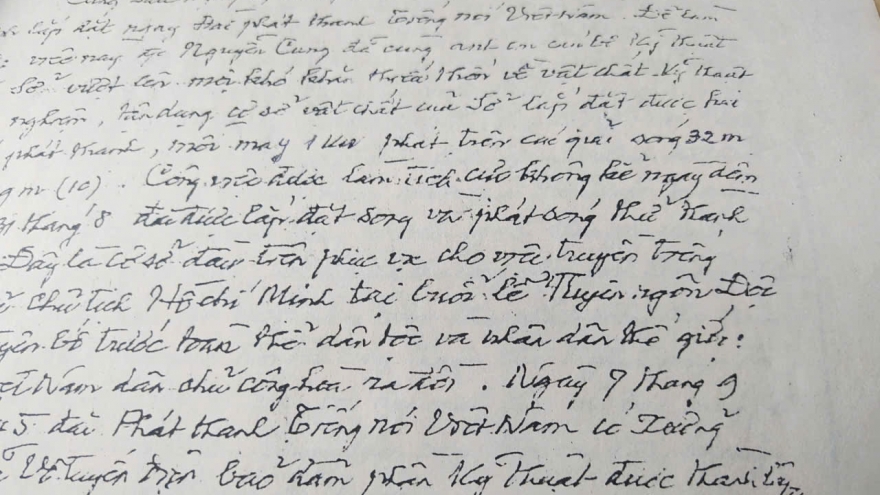 lắp đặt ngay Đài phát thanh tiếng nói Việt Nam. Để làm
việc này đ/c Nguyễn Cung đã cùng anh em cán bộ kỹ thuật
Sở vượt lên mọi khó khăn thiếu thốn về vật chất kỹ thuật
nghiệm, tận dụng cơ sở vật chất của Sở lắp đặt được hai
phát thanh, mỗi máy 1 KW phát trên các giải sóng 32m
m (10). Công việc được làm tích cực không kể ngày đêm
tháng 8 đài được lắp đặt song và phát sóng thử thành
Đây là cơ sở đầu tiên phục vụ cho việc truyền tiếng
chủ tịch Hồ Chí Minh tại buổi lễ Tuyên ngôn Độc
bố trước toàn thể dân tộc và nhân dân thế giới:
Nam dân chủ cộng hoà ra đời. Ngày 7 tháng 9
5 đài Phát thanh Tiếng nói Việt Nam có Xưởng
Vô tuyến điện bảo đảm phần kỹ thuật được thành lập